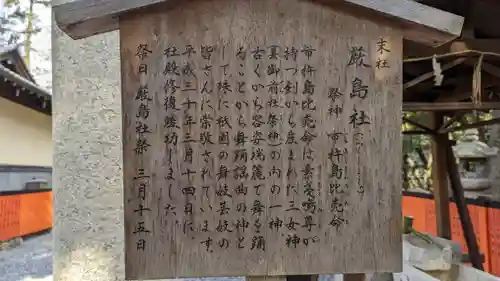 末社
厳島社
祭神 市杵島比売命
市杵島比売命は素戔嗚尊が
持つ剣から産まれた三女神
(美御前社祭神)の内の一神。
古くから容姿端麗で舞を踊
ることから舞踊謡曲の神と
して殊に祇園の舞妓芸妓の
皆さんに崇敬されています。
平成三十年三月四日に、
社殿修復竣功しました。
祭日 厳島社祭 三月十五日